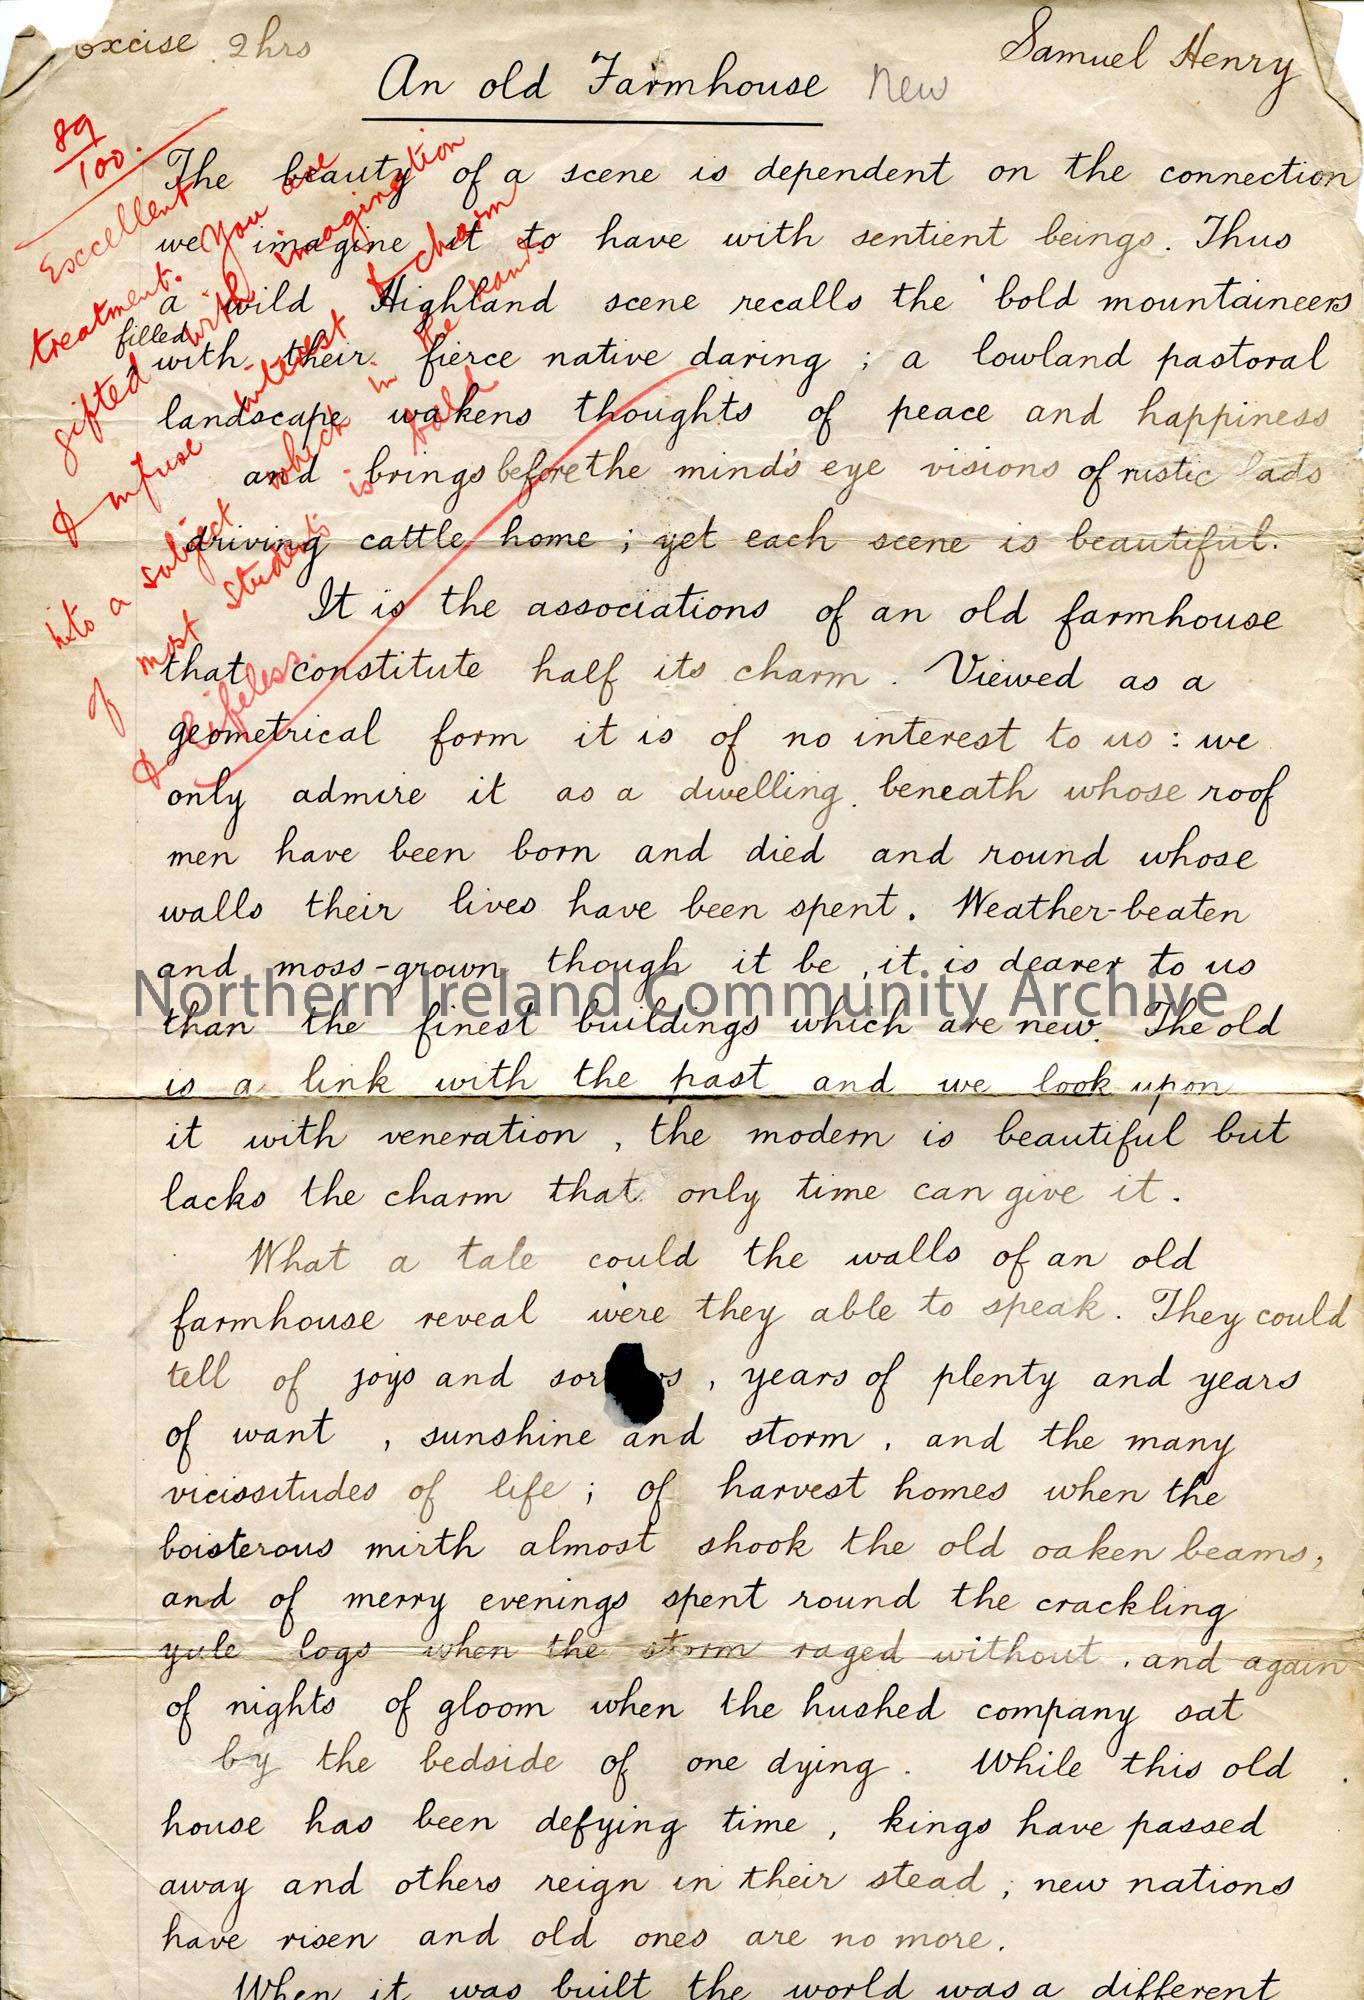 Excise 2hrs
Samuel Henry
An old Farmhouse New
89
100.
Excellent
treatment. You are
gifted with imagination
& infuse interest & charm
into a subject which in the hands
of most students is bald
& lifeless.
The beauty of a scene is dependent on the connection
we imagine it to have with sentient beings. Thus
a wild Highland scene recalls the bold mountaineers
filled
with their fierce native daring ; a lowland pastoral
landscape wakens thoughts of peace and happiness
and brings before the mind's eye visions of rustic lads
driving cattle home ; yet each scene is beautiful.
It is the associations of an old farmhouse
that constitute half its charm. Viewed as a
geometrical form it is of no interest to us : we
only admire it as a dwelling beneath whose roof
men have been born and died and round whose
walls their lives have been spent. Weather-beaten
and moss-grown though it be, it is dearer to us
Northern Ireland Community Archive
than the finest buildings which are new. The old
is a link with the past and we look upon
it with veneration, the modern is beautiful but
lacks the charm that only time can give it.
What a tale could the walls of an old
farmhouse reveal were they able to speak. They could
tell of joys and , years of plenty and years
of want , sunshine and storm , and the many
vicissitudes of life ; of harvest homes when the
boisterous mirth almost shook the old oaken beams,
and of merry evenings spent round the crackling
yule logs when the storm raged without, and again
of nights of gloom when the hushed company sat
by the bedside of one dying. While this old
house has been defying time, kings have passed
away and others reign in their stead ; new nations
have risen and old ones are no more.
When it was built the world was a different